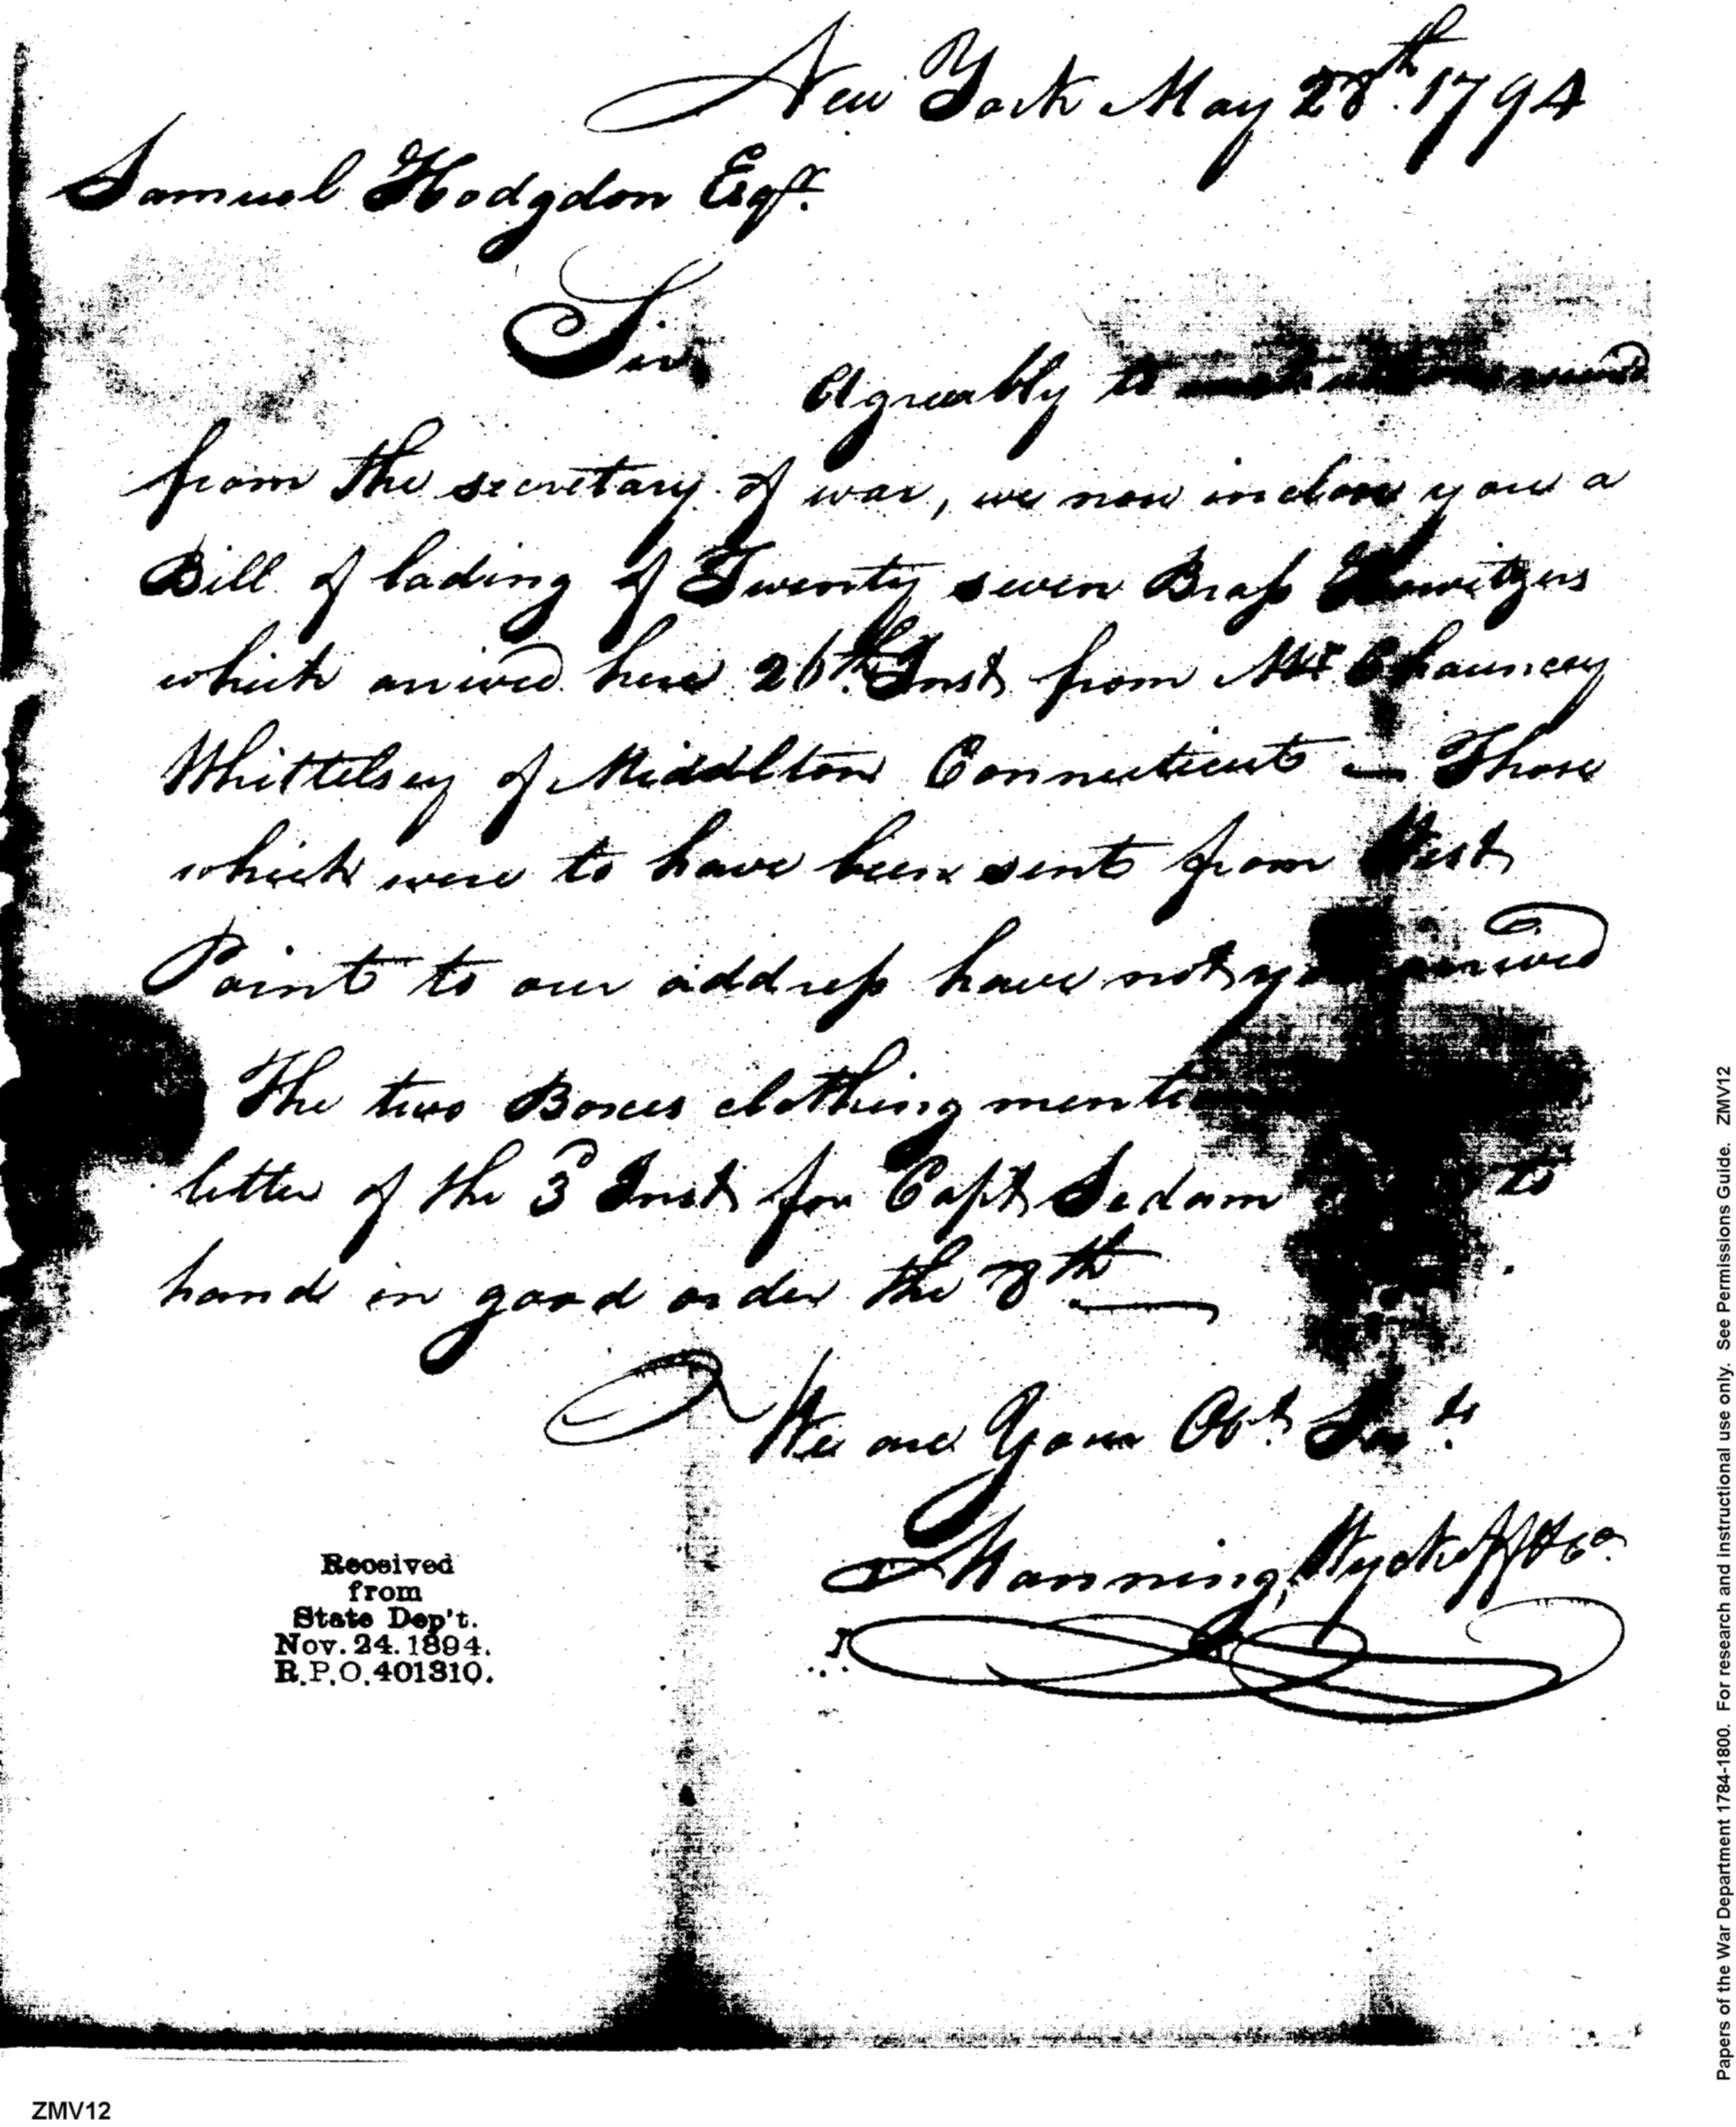 New York May 28th. 1794
Samuel Hodgdon Esqr.
Sir
Agreeably to
from the secretary of war, we now inclose you a
Bill of lading of Twenty seven Brass Howitzers
which arrived here 26th. Inst from Mr Chauncey
Whittelsey of Middelton Connecticut — Those
which were to have been sent from West
Point to our address have not yet arrived
The two Boxes clothing
letter of the 3d Inst for Capt Sedam to
hand in good order the 8th.—
We are Your Obt. Servts.
Manning, Wyckoff & Co.
Received
from
State Dep't.
Nov. 24. 1894.
R.P.O. 401310.
ZMV12
Papers of the War Department 1784-1800. For research and instructional use only. See Permissions Guide. ZMV12